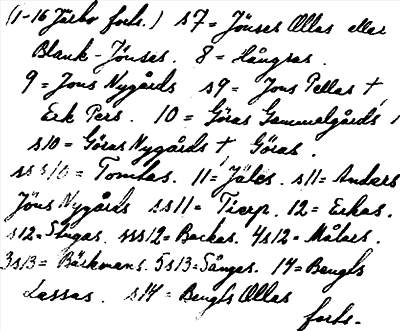 (1-16 Järbo forts.) s7 = Jönses Ollas eller
Blank-Jönses. 8 = Hångsas.
9 = Jons Nygårds s9 = Jons Pellas +,
Erk Pers. 10 = Göras Gammelgårds,
s10 = Göras Nygårds +, Göras.
sss10 = Tomtas. 11 = Jäles. s11 = Anders
Jöns Nygårds ss11 = Tierp. 12 = Erkas.
s12 = Slugas. sss12 = Backas. 4s12 = Målars.
3s13 = Bäckmans. 5s13 = Sångas. 14 = Bengts
Lassas. s14 = Bengts Ollas
forts.